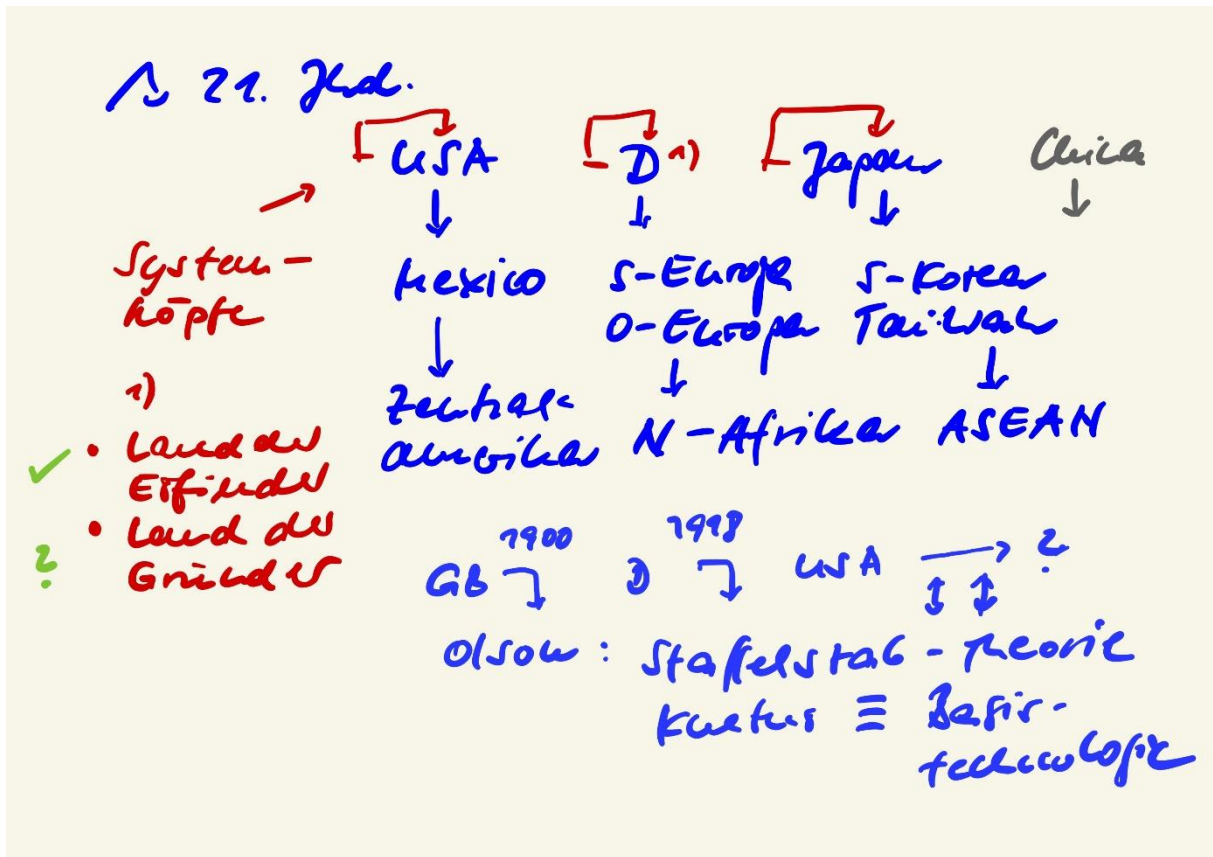 21. Jhd.
USA D 1) Japan China
System-
köpfe
Mexico S-Europa S-Korea
O-Europa Taiwan
Zentral-
amerika N-Afrika ASEAN
1)
• Land der
Erfinder
• Land der
Gründer
?
1900 1918
GB D USA → ?
Olson: Staffelstab-Theorie
Kultur ≡ Basis-
technologie